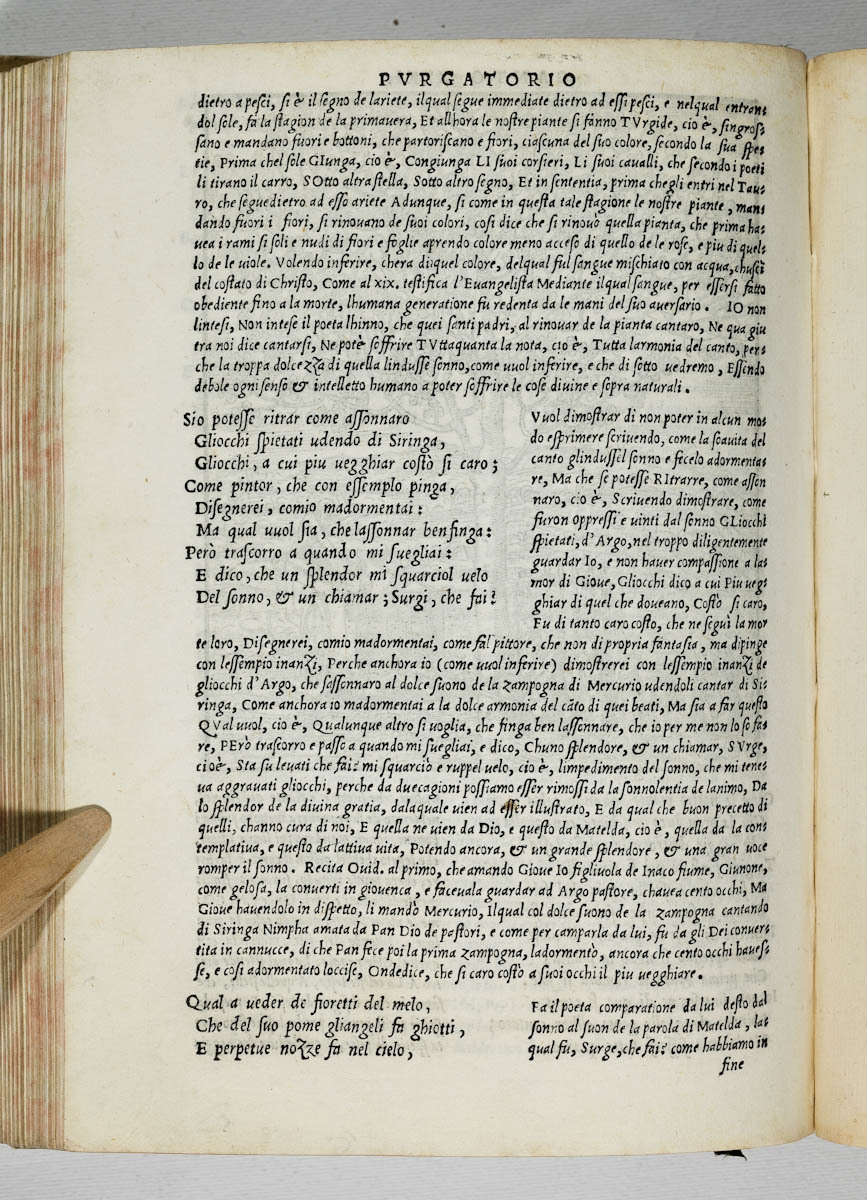 PVRGATORIO
dietro a pesci, si è il segno de lariete, ilqual segue immediate dietro ad essi pesci, e nelqual entran=
dol sole, fa la stagion de la primauera, Et allhora le nostre piante si fanno TVrgide, cio è, singros=
sano e mandano fuori e bottoni, che partoriscano e fiori, ciascuna del suo colore, secondo la sua spe=
tie, Prima chel sole GIunga, cio è, Congiunga LI suoi corsieri, Li suoi caualli, che secondo i poeti
li tirano il carro, SOtto altra stella, Sotto altro segno, Et in sententia, prima chegli entri nel Tau=
ro, che segue dietro ad esso ariete Adunque, si come in questa tale stagione le nostre piante, man=
dando fuori i fiori, si rinouano de suoi colori, cosi dice che si rinouò quella pianta, che prima ha=
uea i rami si soli e nudi di fiori e foglie aprendo colore meno acceso di quello de le rose, e piu di quel=
lo de le uiole. Volendo inferire, chera di quel colore, delqual ful sangue mischiato con acqua, chuscì
del costato di Christo, Come al xix. testifica l'Euangelista Mediante ilqual sangue, per essersi fatto
obediente fino a la morte, lhumana generatione fu redenta da le mani del suo auersario. IO non
lintesi, Non intese il poeta lhinno, che quei santi padri, al rinouar de la pianta cantaro, Ne qua giu
tra noi dice cantarsi, Ne potè soffrire TVttaquanta la nota, cio è, Tutta larmonia del canto, per=
che la troppa dolcezza di quella lindusse sonno, come uuol inferire, e che di sotto uedremo, Essendo
debole ogni senso & intelletto humano a poter soffrire le cose diuine e sopra naturali.
Sio potesse ritrar come assonnaro
Gliocchi spietati udendo di Siringa,
Gliocchi, a cui piu uegghiar costò si caro;
Come pintor, che con essemplo pinga,
Disegnerei, comio madormentai:
Ma qual uuol sia, che lassonnar ben finga:
Però trascorro a quando mi suegliai:
E dico, che un splendor mi squarciol uelo
Del sonno, & un chiamar; Surgi, che fai?
Vuol dimostrar di non poter in alcun mo=
do esprimere scriuendo, come la soauita del
canto glindussel sonno e fecelo adormenta=
re, Ma che se potesse RItrarre, come asson
naro, cio è, Scriuendo dimostrare, come
furon oppressi e uinti dal sonno GLiocchi
spietati, d'Argo, nel troppo diligentemente
guardar Io, e non hauer compassione a la=
mor di Gioue, Gliocchi dico a cui Piu ueg=
ghiar di quel che doueano, Costò si caro,
Fu di tanto caro costo, che ne seguì la mor
te loro, Disegnerei, comio madormentai, come fal pittore, che non di propria fantasia, ma dipinge
con lessempio inanzi, Perche anchora io (come uuol inferire) dimostrerei con lessempio inanzi de
gliocchi d'Argo, che sossonnaro al dolce suono de la zampogna di Mercurio udendoli cantar di Si=
ringa, Come anchora io madormentai a la dolce armonia del cāto di quei beati, Ma sia a far questo
QVal uuol, cio è, Qualunque altro si uoglia, che finga ben lassonnare, che io per me non lo so fa=
re, PErò trascorro e passo a quando mi suegliai, e dico, Chuno splendore, & un chiamar, SVrge,
cio è, Sta su leuati che fai? mi squarciò e ruppel uelo, cio è, limpedimento del sonno, che mi tene=
ua aggrauati gliocchi, perche da due cagioni possiamo esser rimossi da la sonnolentia de lanimo, Da
lo splendor de la diuina gratia, dala quale uien ad esser illustrato, E da qual che buon precetto di
quelli, channo cura di noi, E quella ne uien da Dio, e questo da Matelda, cio è, quella da la con=
templatiua, e questo da lattiua uita, Potendo ancora, & un grande splendore, & una gran uoce
romper il sonno. Recita Ouid. al primo, che amando Gioue Io figliuola de Inaco fiume, Giunone,
come gelosa, la conuertì in giouenca, e faceuala guardar ad Argo pastore, chauea cento occhi, Ma
Gioue hauendolo in dispetto, li mandò Mercurio, Ilqual col dolce suono de la zampogna cantando
di Siringa Nimpha amata da Pan Dio de pastori, e come per camparla da lui, fu da gli Dei conuer=
tita in cannucce, di che Pan fece poi la prima zampogna, ladormentò, ancora che cento occhi hauess=
se, e cosi adormentato loccise, Ondedice, che si caro costò a suoi occhi il piu uegghiare.
Qual a ueder de fioretti del melo,
Che del suo pome gliangeli fa ghiotti,
E perpetue nozze fa nel cielo,
Fa il poeta comparatione da lui desto dal
sonno al suon de la parola di Matelda, la=
qual fu, Surge, che fai? come habbiamo in
fine